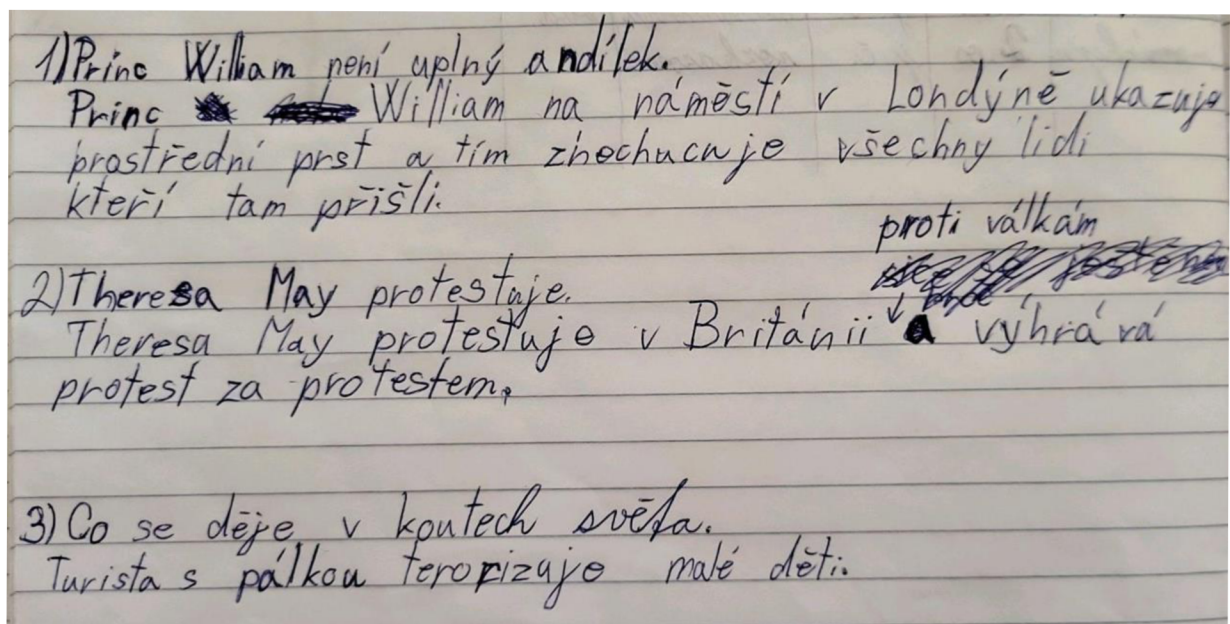 1) Princ William není uplný andílek.
Princ William na náměstí v Londýně ukazuje
prostřední prst a tím znechucuje všechny lidi
kteří tam přišli.
proti válkám
2) Theresa May protestuje.
Theresa May protestuje v Británii a vyhrává
protest za protestem.
3) Co se děje v koutech světa.
Turista s pálkou terorizuje malé děti.